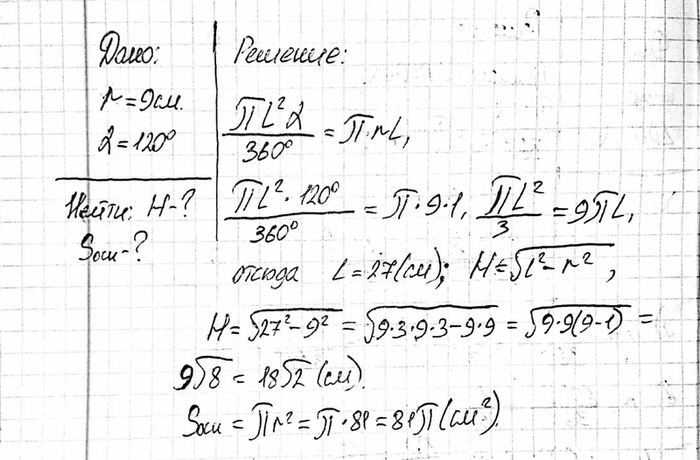 Дано:
r = 9 см.
α = 120°
Найти: H - ?
Sосн - ?
Решение:
πL²α / 360° = π·rL,
πL² · 120° / 360° = π · 9 · l, πL² / 3 = 9πL,
отсюда L = 27 (см); H = √(L² - r²),
H = √(27² - 9²) = √(9·3·9·3 - 9·9) = √(9·9(9-1)) =
9√8 = 18√2 (см).
Sосн = πr² = π·81 = 81π (см²).